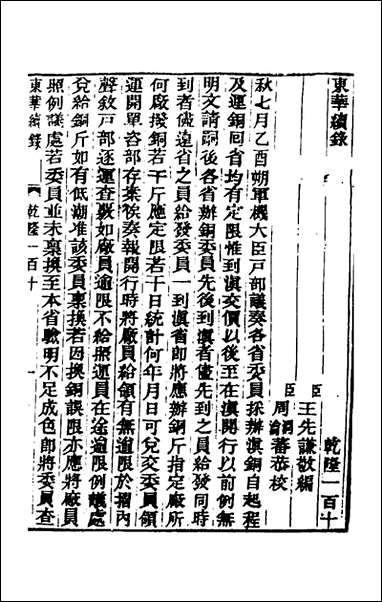 東華續錄
乾隆一百十
臣王先謙敬編
臣周潤蕃
周渝蕃恭校
秋七月乙酉朔軍機大臣戶部議奏各省委員採辦滇銅自起程
及運銅回省均有定限惟到滇交價以後至在滇開行以前例無
明文請嗣後各省辦銅委員先後到滇者儘先到之員給發同時
到者儘遠省之員給發委員一到滇省即將應辦銅斤指定廠所
何廠撥銅若干斤應定限若干日統計何年月日可兌交委員領
運開單咨部存案俟奏報開行時將廠員給領有無逾限於摺內
聲敘戶部逐運查覈如廠員逾限不給照運員在途逾限例議處
兌給銅斤如有低潮准該委員稟換若因換銅誤限亦應將廠員
照例議處若委員並未稟換至本省驗明不足成色即將委員查
東華續錄
乾隆一百十
一